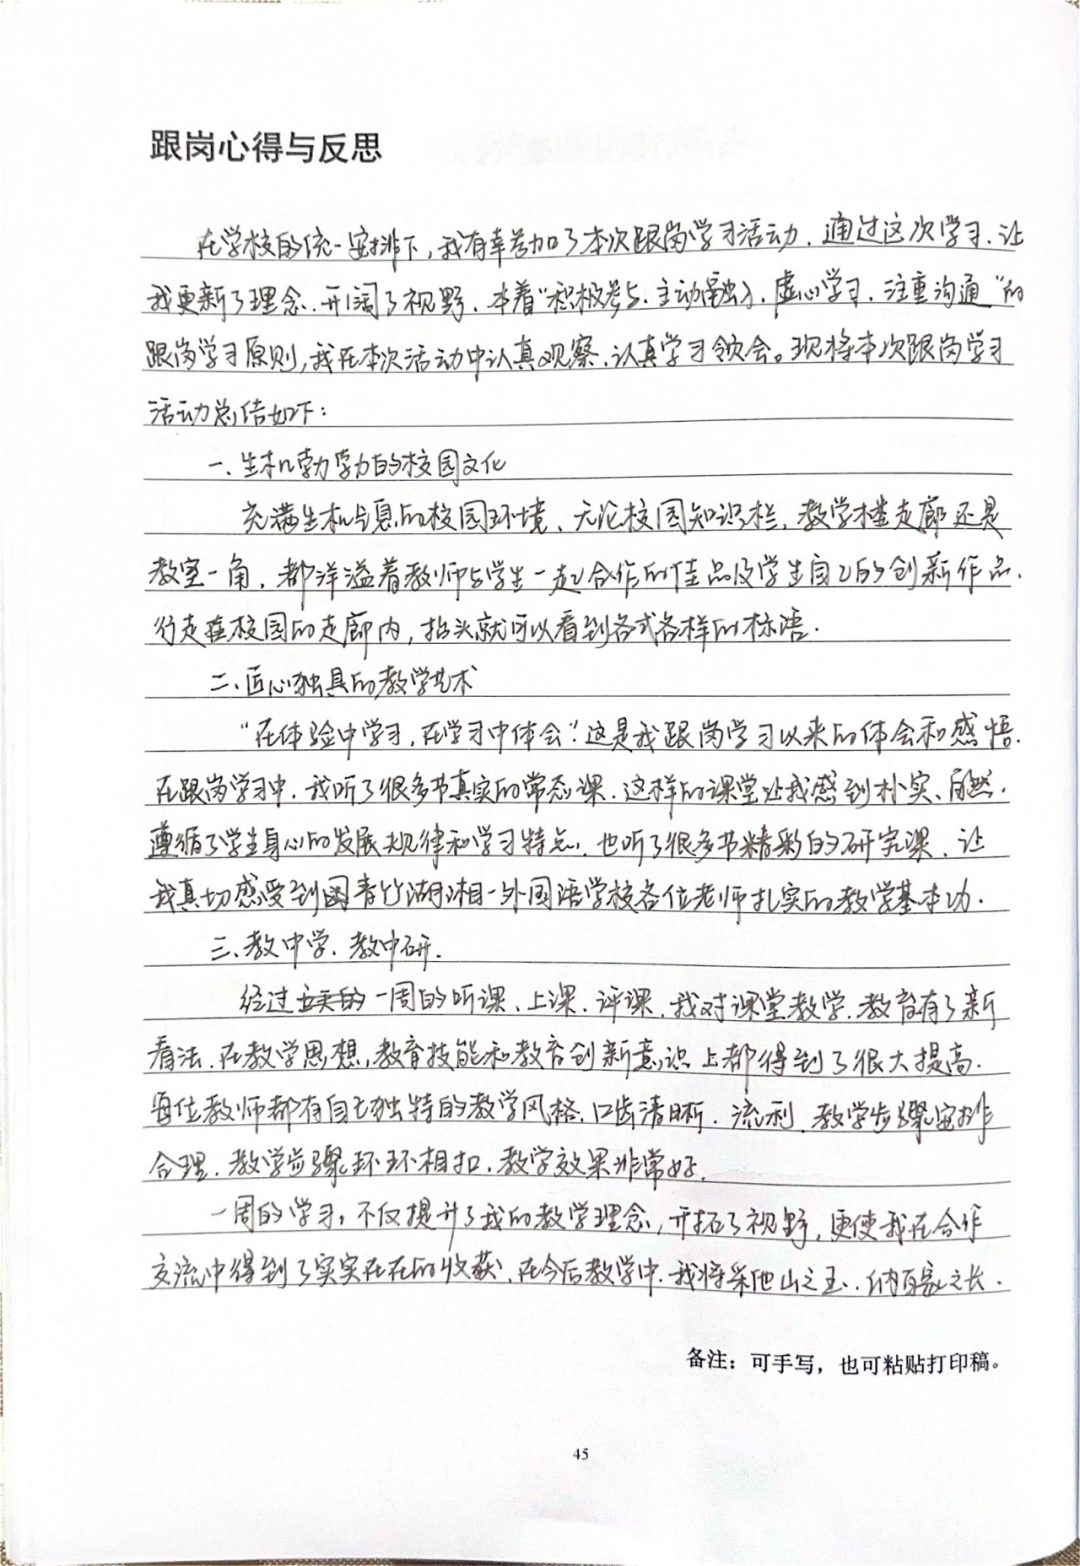 跟岗心得与反思
在学校的统一安排下，我有幸参加了本次跟岗学习活动，通过这次学习，让
我更新了理念，开阔了视野，本着“积极参与、主动融入、虚心学习，注重沟通”的
跟岗学习原则，我在本次活动中认真观察、认真学习领会。现将本次跟岗学习
活动总结如下：
一、生机勃勃的校园文化
充满生机与息的校园环境，无论校园知识栏，教学楼走廊还是
教室一角，都洋溢着教师与学生一起合作的佳品及学生自己的创新作品，
行走在校园的走廊内，抬头就可以看到各式各样的标语.
二、匠心独具的教学艺术
“在体验中学习，在学习中体会”这是我跟岗学习以来的体会和感悟.
在跟岗学习中，我听了很多节真实的常态课，这样的课堂让我感到朴实、自然，
遵循了学生身心的发展规律和学习特点，也听了很多节精彩的研究课，让
我真切感受到青竹湖湘一外国语学校各位老师扎实的教学基本功.
三、教中学，教中研.
经过一周的听课、上课、评课，我对课堂教学，教育有了新
看法，在教学思想，教育技能和教育创新意识上都得到了很大提高.
每位教师都有自己独特的教学风格，口齿清晰，流利，教学步骤安排
合理，教学步骤环环相扣，教学效果非常好.
一周的学习，不仅提升了我的教学理念，开拓了视野，更使我在合作
交流中得到了实实在在的收获，在今后教学中，我将采他山之玉，纳百家之长.
备注：可手写，也可粘贴打印稿。
45